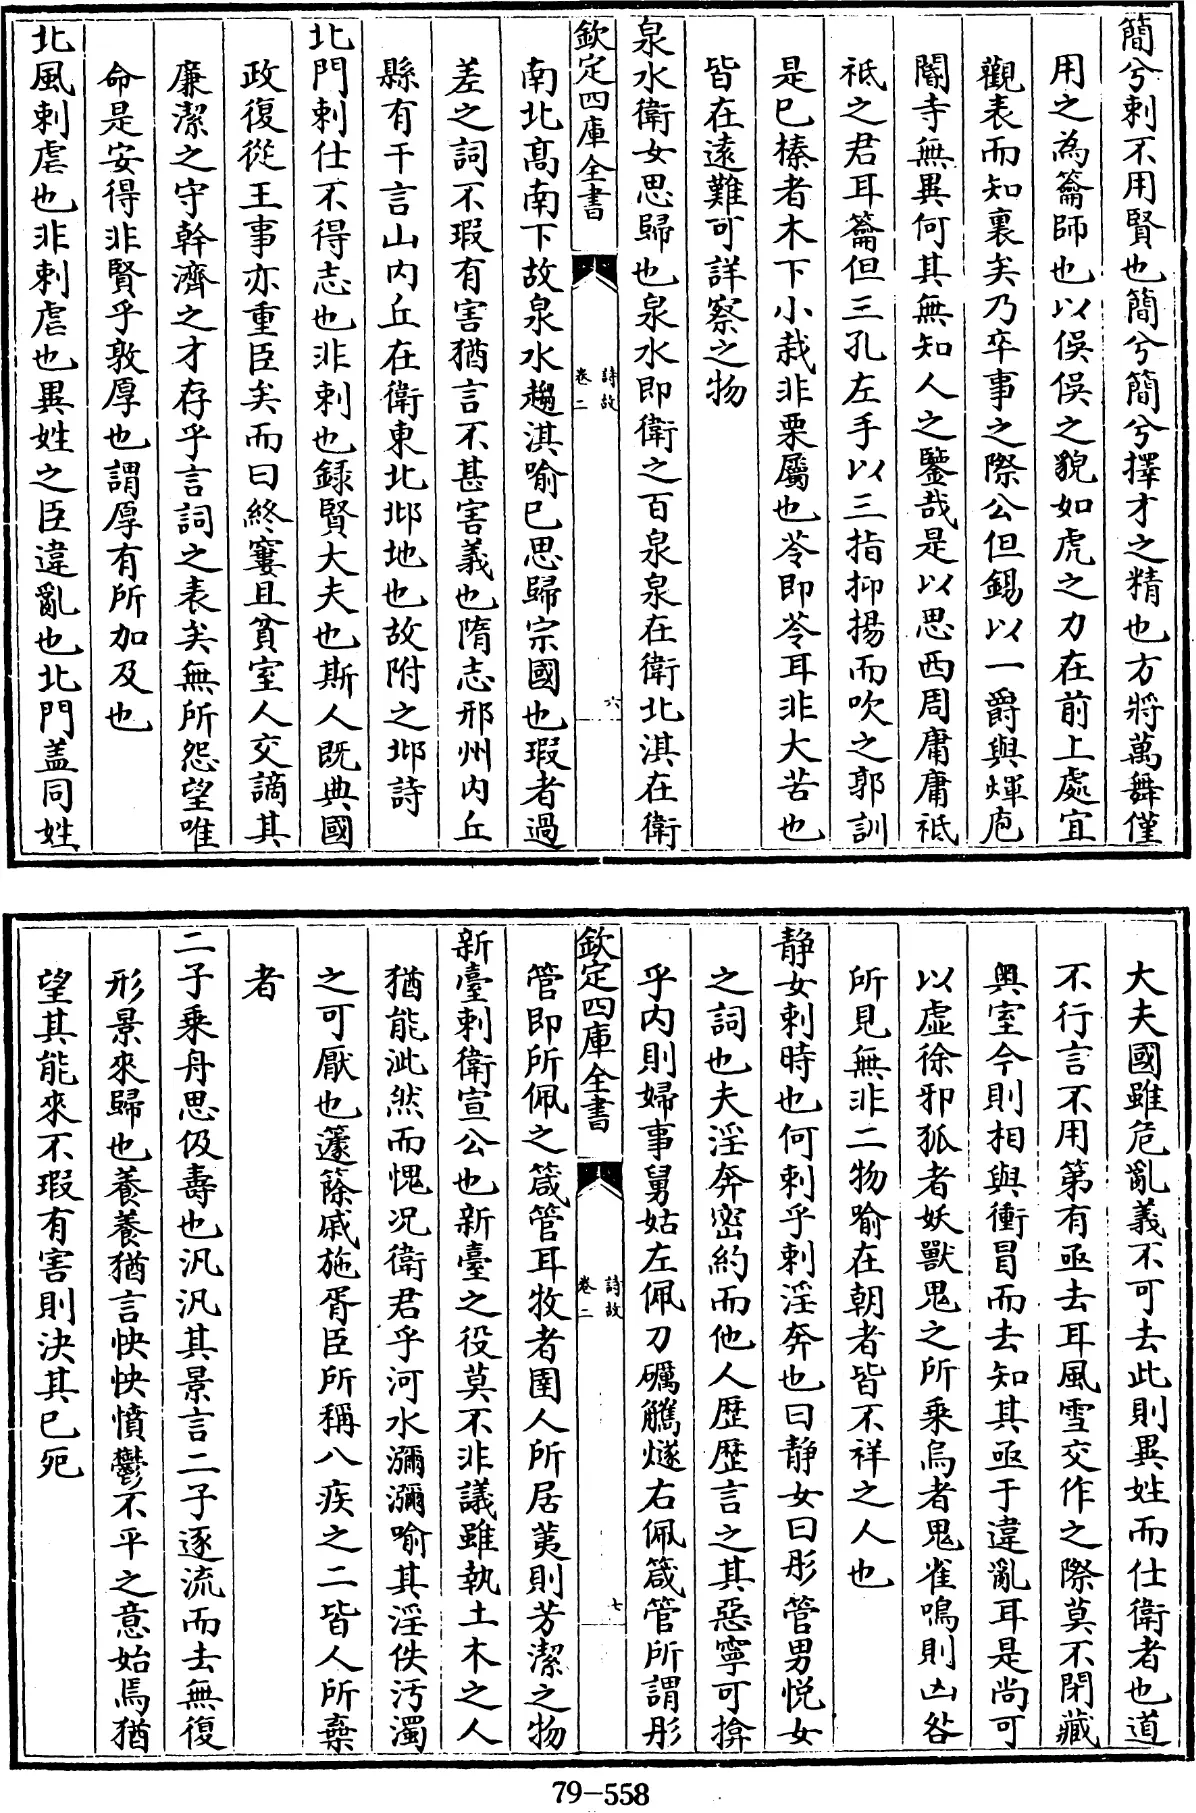 簡兮刺不用賢也簡兮簡兮擇才之精也方將萬舞僅
用之為籥師也以俁俁之貌如虎之力在前上處宜
觀表而知裏矣乃卒事之際公但錫以一爵與煇庖
閽寺無異何其無知人之鑒哉是以思西周庸庸祗
祗之君耳籥但三孔左手以三指抑揚而吹之郭訓
是已榛者木下小栽非栗屬也苓即苓耳非大苦也
皆在逺難可詳察之物
泉水衛女思歸也泉水即衛之百泉泉在衛北淇在衛
欽定四庫全書
詩故
卷二
六
南北髙南下故泉水趨淇喻已思歸宗國也瑕者過
差之詞不瑕有害猶言不甚害義也隋志邢州内丘
縣有干言山内丘在衛東北邶地也故附之邶詩
北門刺仕不得志也非刺也録賢大夫也斯人既典國
政復從王事亦重臣矣而曰終窶且貧室人交謫其
廉潔之守幹濟之才存乎言詞之表矣無所怨望唯
命是安得非賢乎敦厚也謂厚有所加及也
北風刺虐也非刺虐也異姓之臣違亂也北門盖同姓
大夫國雖危亂義不可去此則異姓而仕衛者也道
不行言不用第有亟去耳風雪交作之際莫不閉藏
奥室今則相與衝冒而去知其亟于違亂耳是尚可
以虚徐邪狐者妖獸鬼之所乗烏者鬼雀鳴則凶咎
所見無非二物喻在朝者皆不祥之人也
静女刺時也何刺乎刺淫奔也曰静女曰彤管男悦女
之詞也夫淫奔密約而他人歴歴言之其惡寧可揜
乎内則婦事舅姑左佩刀礪觿燧右佩箴管所謂彤
欽定四庫全書
詩故
卷二
七
管即所佩之箴管耳牧者圉人所居荑則芳潔之物
新臺刺衛宣公也新臺之役莫不非議雖執土木之人
猶能泚然而愧况衛君乎河水瀰瀰喻其淫佚汚濁
之可厭也籧篨戚施胥臣所稱八疾之二皆人所棄
者
二子乗舟思伋壽也汎汎其景言二子逐流而去無復
形景來歸也養養猶言怏怏憤鬱不平之意始焉猶
望其能來不瑕有害則決其已死
79-558